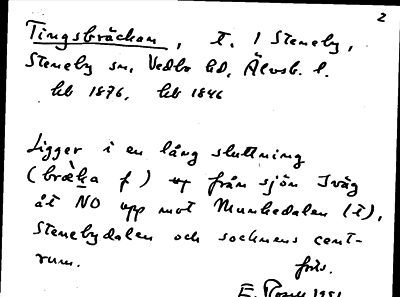 2
Tingsbräckan, t. / Steneby,
Steneby sn, Vedbo hd, Älvsb. l.
hb 1876, hb 1846
Ligger i en lång sluttning
(bræka f) från sjön Iväg
åt NO upp mot Munkedalen (t),
Stenebydalen och socknens cent-
rum. förs.
E. 1951